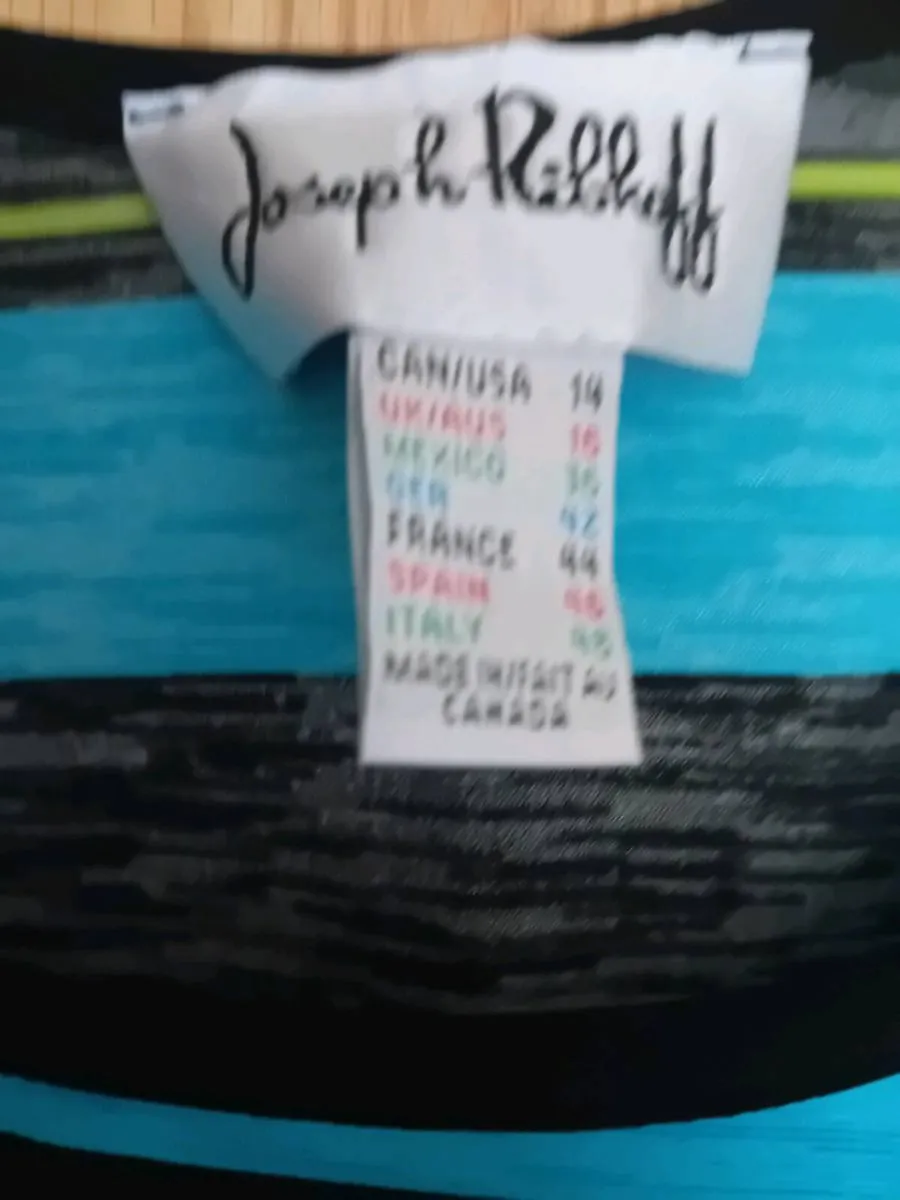 Joseph Ribkoff
CAN/USA 14
UK/AUS 16
MEXICO 36
GER 42
FRANCE 44
SPAIN 46
ITALY 48
MADE IN/FAIT AU
CANADA